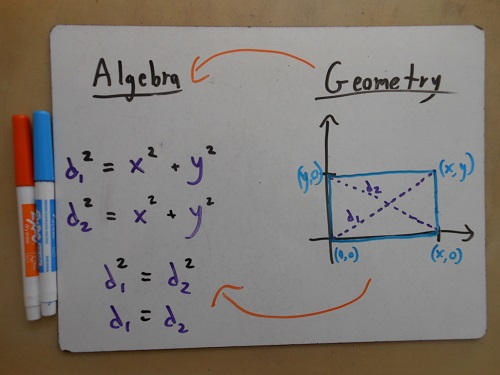 Algebra
Geometry
d₁² = x² + y²
d₂² = x² + y²
d₁² = d₂²
d₁ = d₂
(y,0)
(x,y)
d₂
d₁
(0,0)
(x,0)